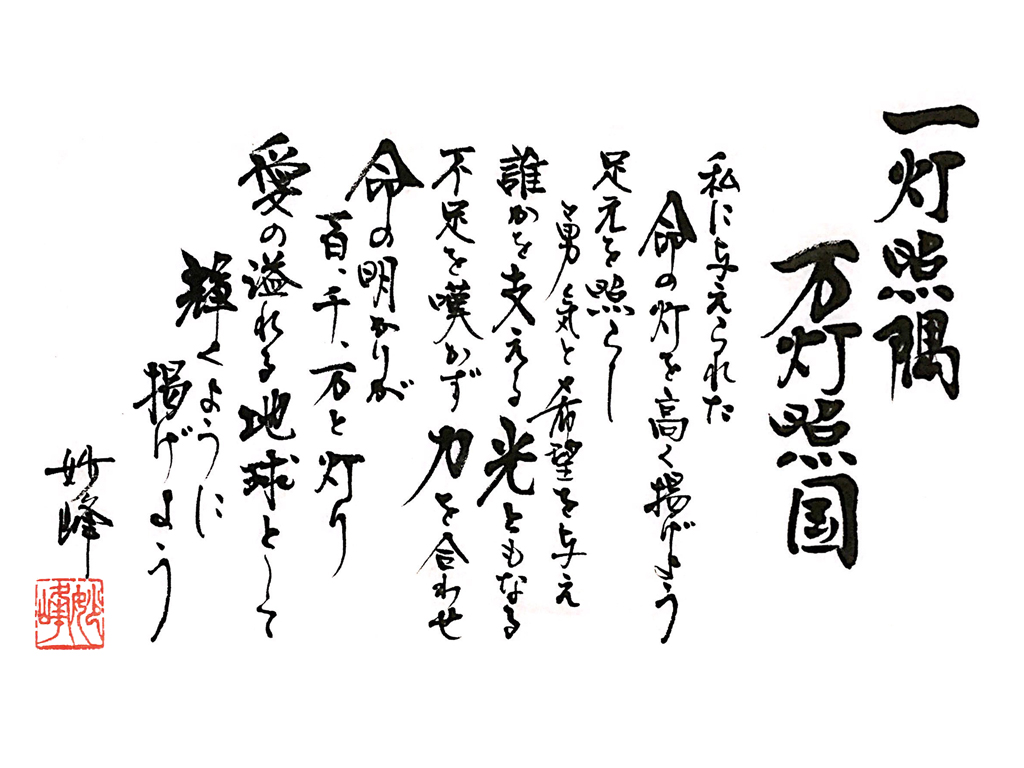 一灯照隅
万灯照国
私に与えられた
命の灯を高く揚げよう
足元を照らし
勇気と希望を与え
誰かを支える光ともなる
不足を嘆かず力を合わせ
命の明かりが
百、千、万と灯り
愛の溢れる地球として
輝くように
揚げよう
妙峰
妙峰